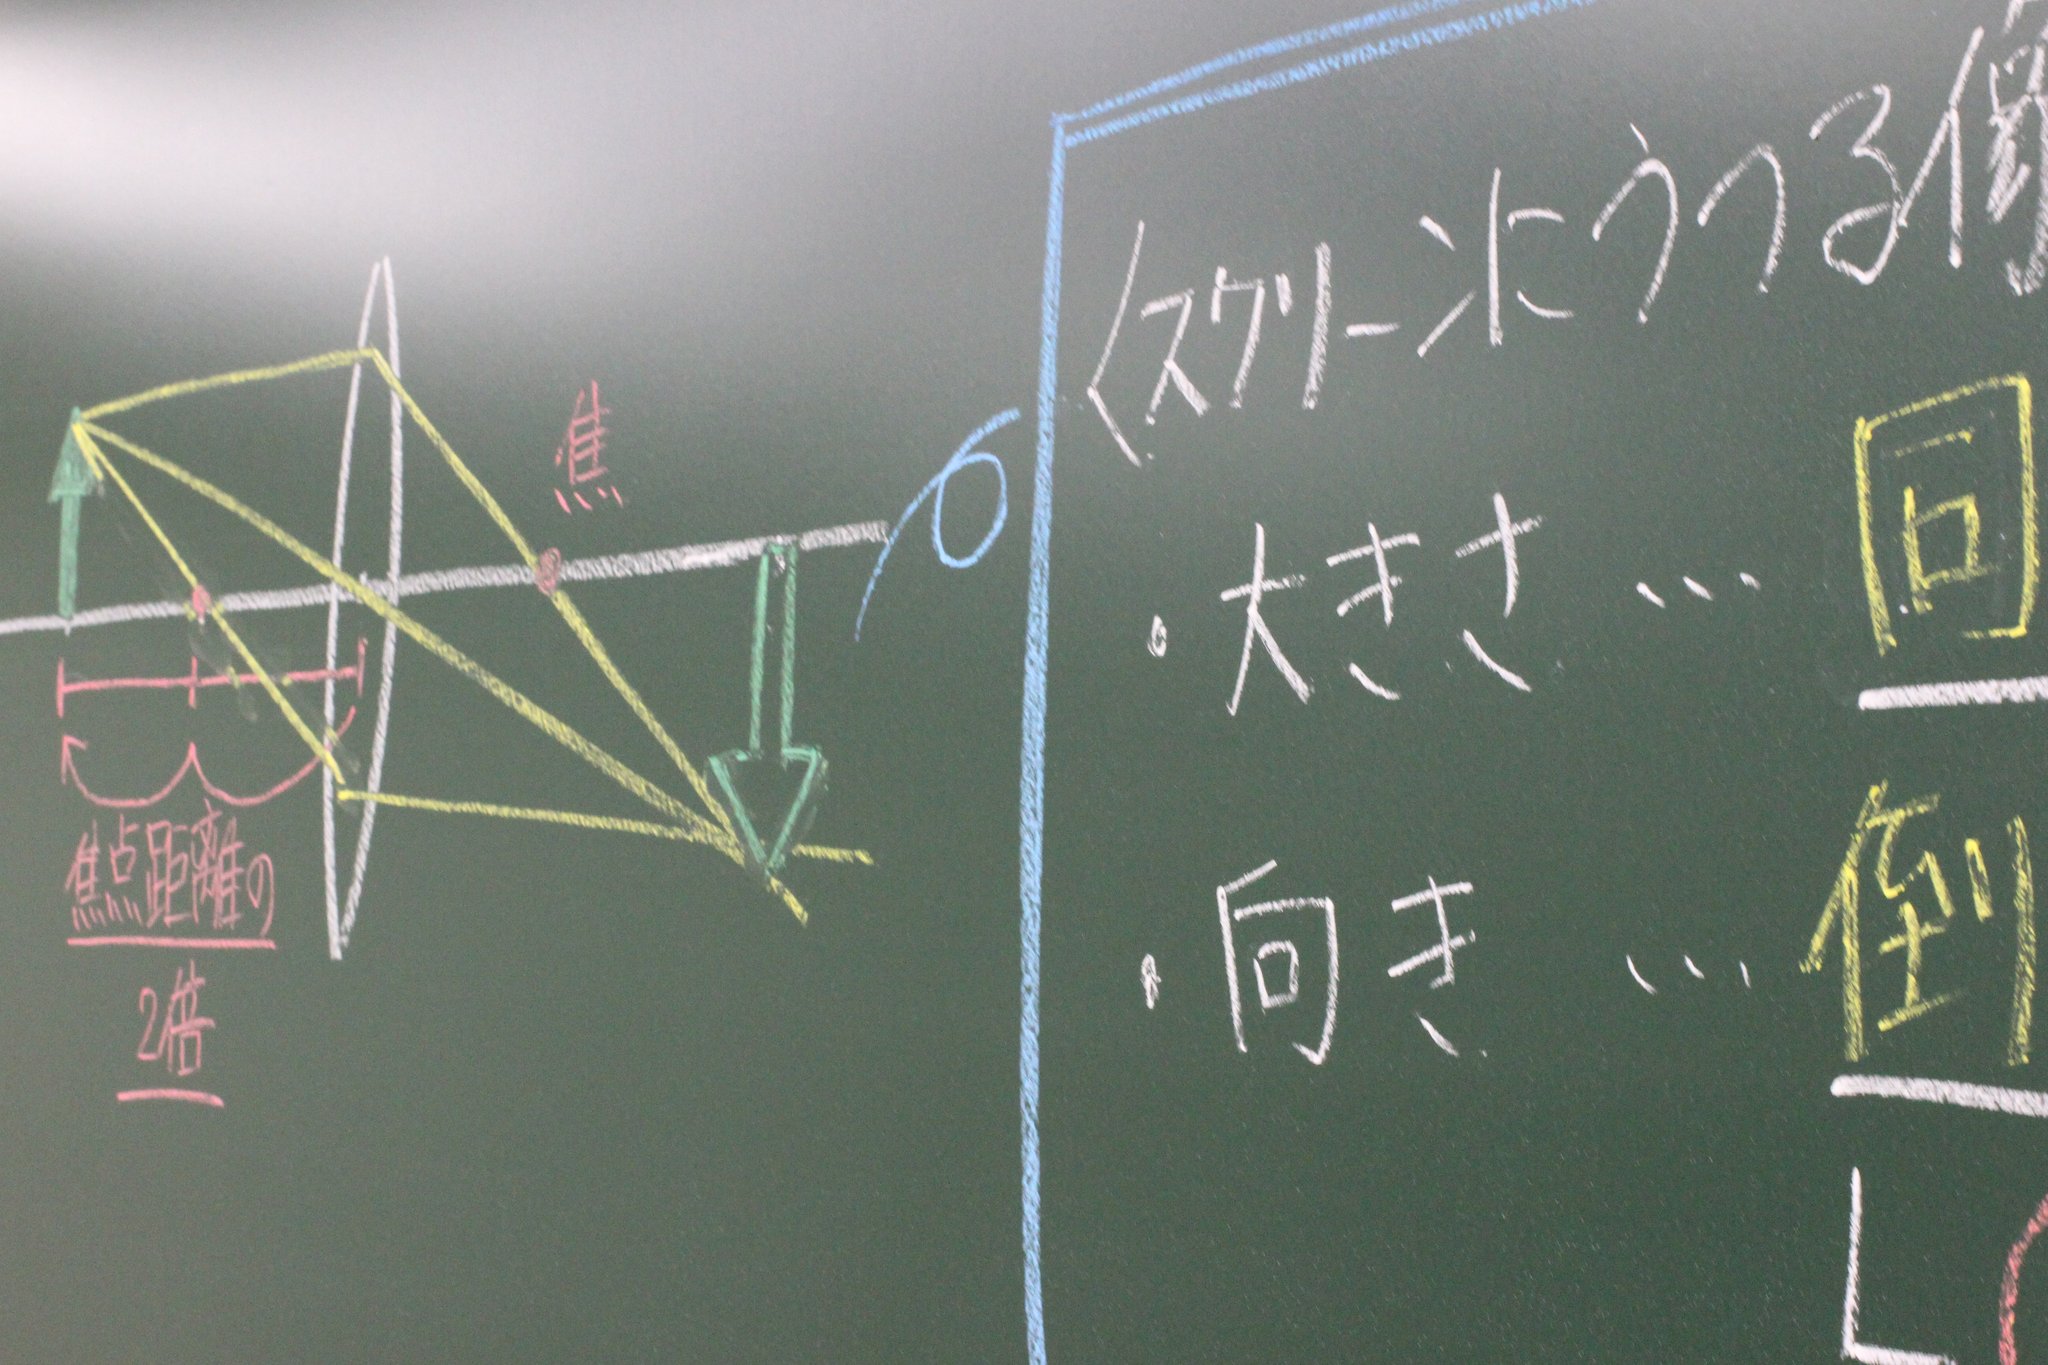 焦
焦点距離の
2倍
〈スクリーンにうつる像
・大きさ … 同
・向き … 倒